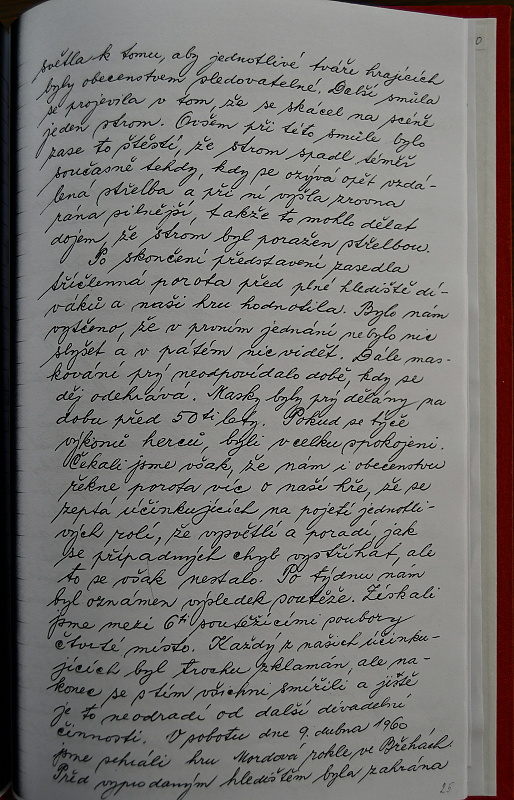 světla k tomu, aby jednotlivé tváře hrajících
byly obecenstvem sledovatelné. Další smůla
se projevila v tom, že se skácel na scéně
jeden strom. Ovšem při této smůle bylo
zase to štěstí, že strom spadl téměř
současně tehdy, kdy se ozývá opět vzdá-
lená střelba a při ní vyšla zrovna
rána silnější, takže to mohlo dělat
dojem, že strom byl poražen střelbou.
Po skončení představení zasedla
tříčlenná porota před plné hlediště di-
váků a naši hru hodnotila. Bylo nám
vytčeno, že v prvním jednání nebylo nic
slyšet a v pátém nic vidět. Dále mas-
kování prý neodpovídalo době, kdy se
děj odehrává. Masky byly prý dělány na
dobu před 50ti lety. Pokud se týče
výkonů herců, byli vcelku spokojeni.
Čekali jsme však, že nám i obecenstvu
řekne porota víc o naší hře, že se
zeptá účinkujících na pojetí jednotli-
vých rolí, že vysvětlí a poradí, jak
se případných chyb vystříhat, ale
to se však nestalo. Po týdnu nám
byl oznámen výsledek soutěže. Získali
jsme mezi 6ti soutěžícími soubory
čtvrté místo. Každý z našich účinku-
jících byl trochu zklamán, ale na-
konec se s tím všichni smířili a jistě
je to neodradí od další divadelní
činnosti. V sobotu dne 9. dubna 1960
jsme sehráli hru Mordová rokle ve Břehách.
Před vyprodaným hledištěm byla zahrána
25